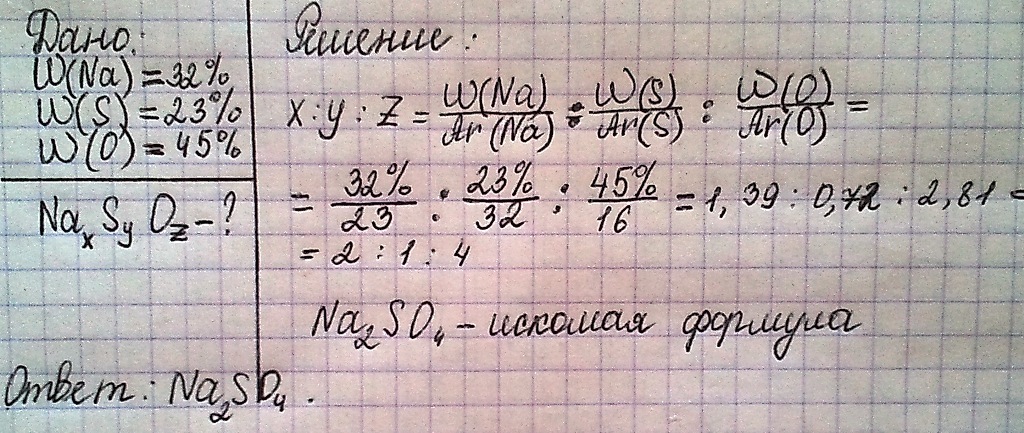 Дано:
W(Na) = 32%
W(S) = 23%
W(O) = 45%
NaxSyOz - ?
Решение:
x : y : z = W(Na)/Ar(Na) : W(S)/Ar(S) : W(O)/Ar(O) =
= 32%/23 : 23%/32 : 45%/16 = 1,39 : 0,72 : 2,81 =
= 2 : 1 : 4
Na₂SO₄ - искомая формула
Ответ: Na₂SO₄.